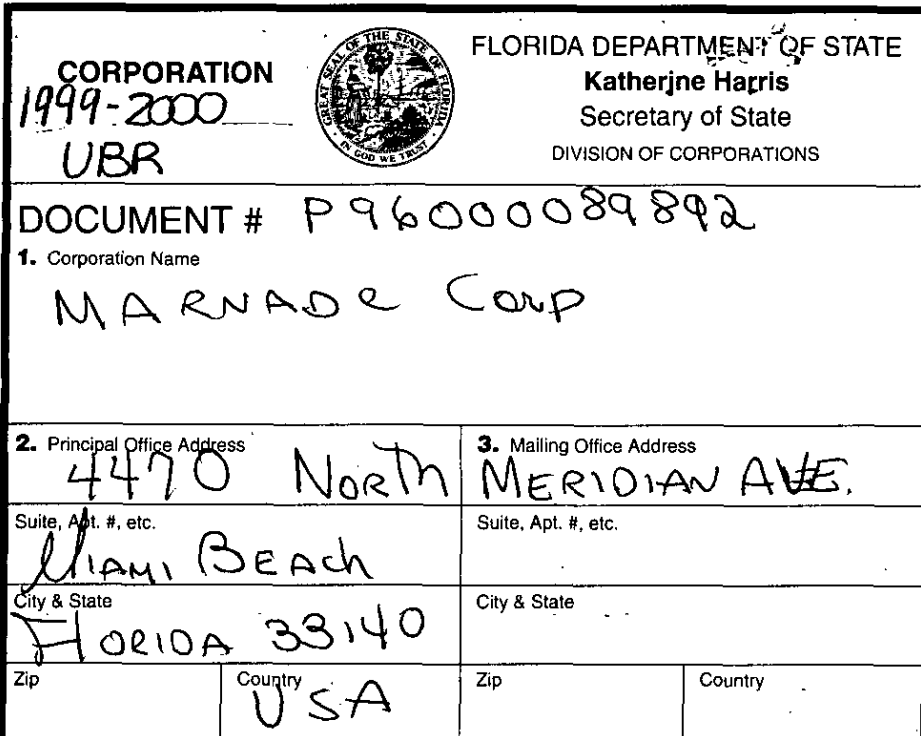 CORPORATION
1999-2000
UBR
GREAT SEAL OF THE STATE OF FLORIDA
IN GOD WE TRUST
FLORIDA DEPARTMENT OF STATE
Katherine Harris
Secretary of State
DIVISION OF CORPORATIONS
DOCUMENT # P96000089892
1. Corporation Name
MARNADE Corp
2. Principal Office Address
4470 North
3. Mailing Office Address
MERIDIAN AVE.
Suite, Apt. #, etc.
Miami BEACh
Suite, Apt. #, etc.
City & State
FlORIDA 33140
City & State
Zip
Country
USA
Zip
Country